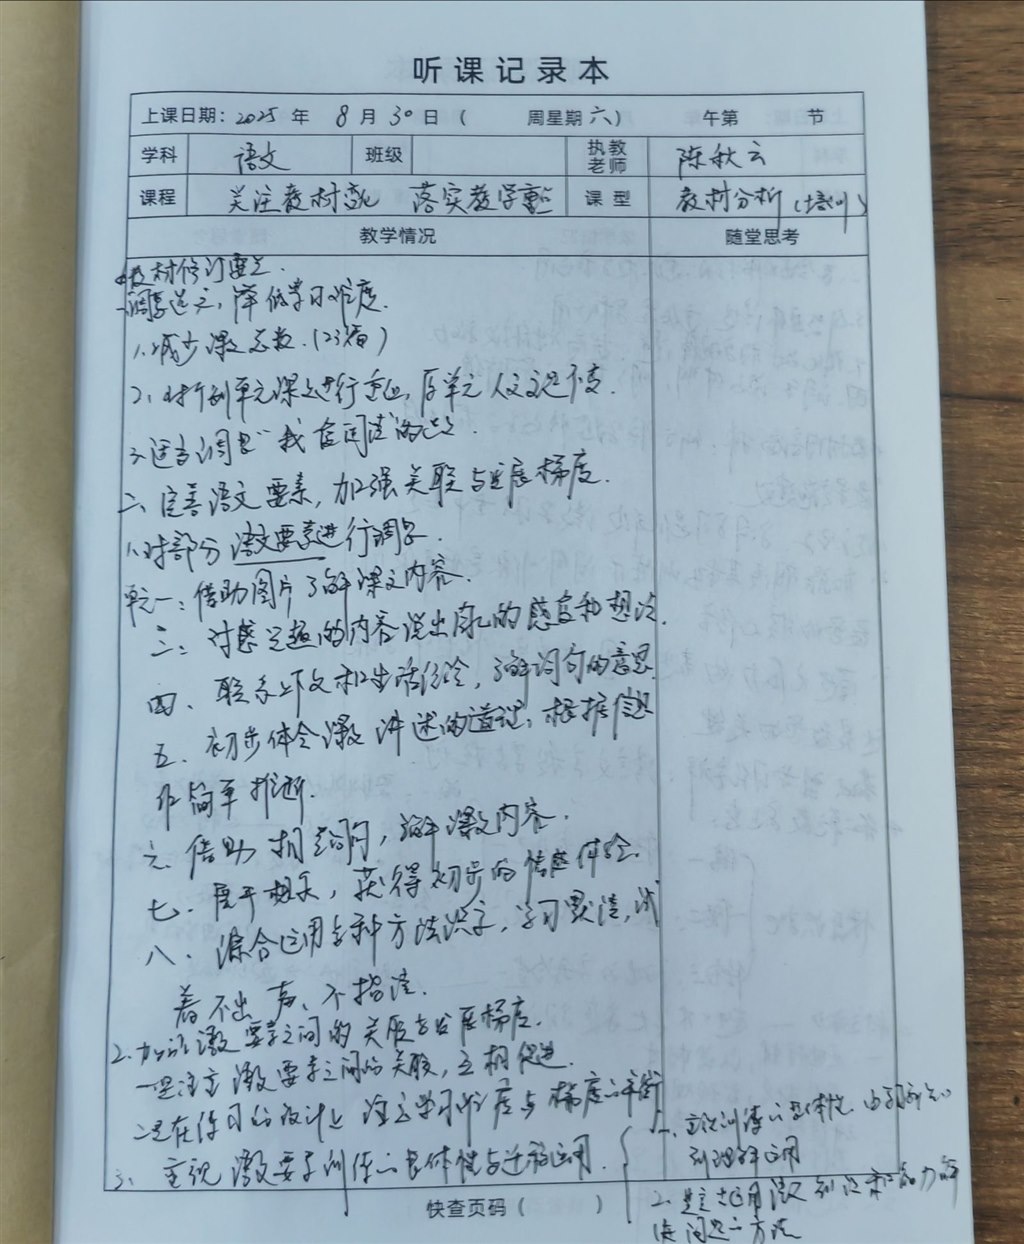 听课记录本
上课日期：2025 年 8 月 30 日（ 周星期 六） 午第 节
学科 语文 班级 执教老师 陈秋云
课程 关注教材变化 落实教学重点 课型 教材分析（培训）
教学情况 随堂思考
教材修订要点.
一调整选文，降低学习难度.
1.减少课文总数.（23篇）
2.对个别单元课文进行 ，原单元人文主题不变.
3.适当调整"我爱阅读"的
二、完善语文要素，加强关联与发展梯度.
1.对部分语文要素进行调整.
单元一：借助图片了解课文内容.
三：对感兴趣的内容说出自己的感受和想法.
四、联系上下文和生活经验，了解词句的意思.
五、初步体会课文讲述的道理，根据信息
作简单推断.
六、借助 ，了解课文内容.
七、展开想象，获得初步的情感体验.
八、综合运用多种方法识字，学习默读，试
着不出声、不指读.
2.加强语文要素之间的关联与发展梯度.
一是注意语文要素之间的关联，互相促进.
二是在练习的设计上注意学习难度与梯度的平衡
3、重视语文要素训练的整体性与迁移运用.
一. 训练的整体性，由
到理解运用
2. 运用语文知识和能力解
决问题的方法
快查页码（ ）